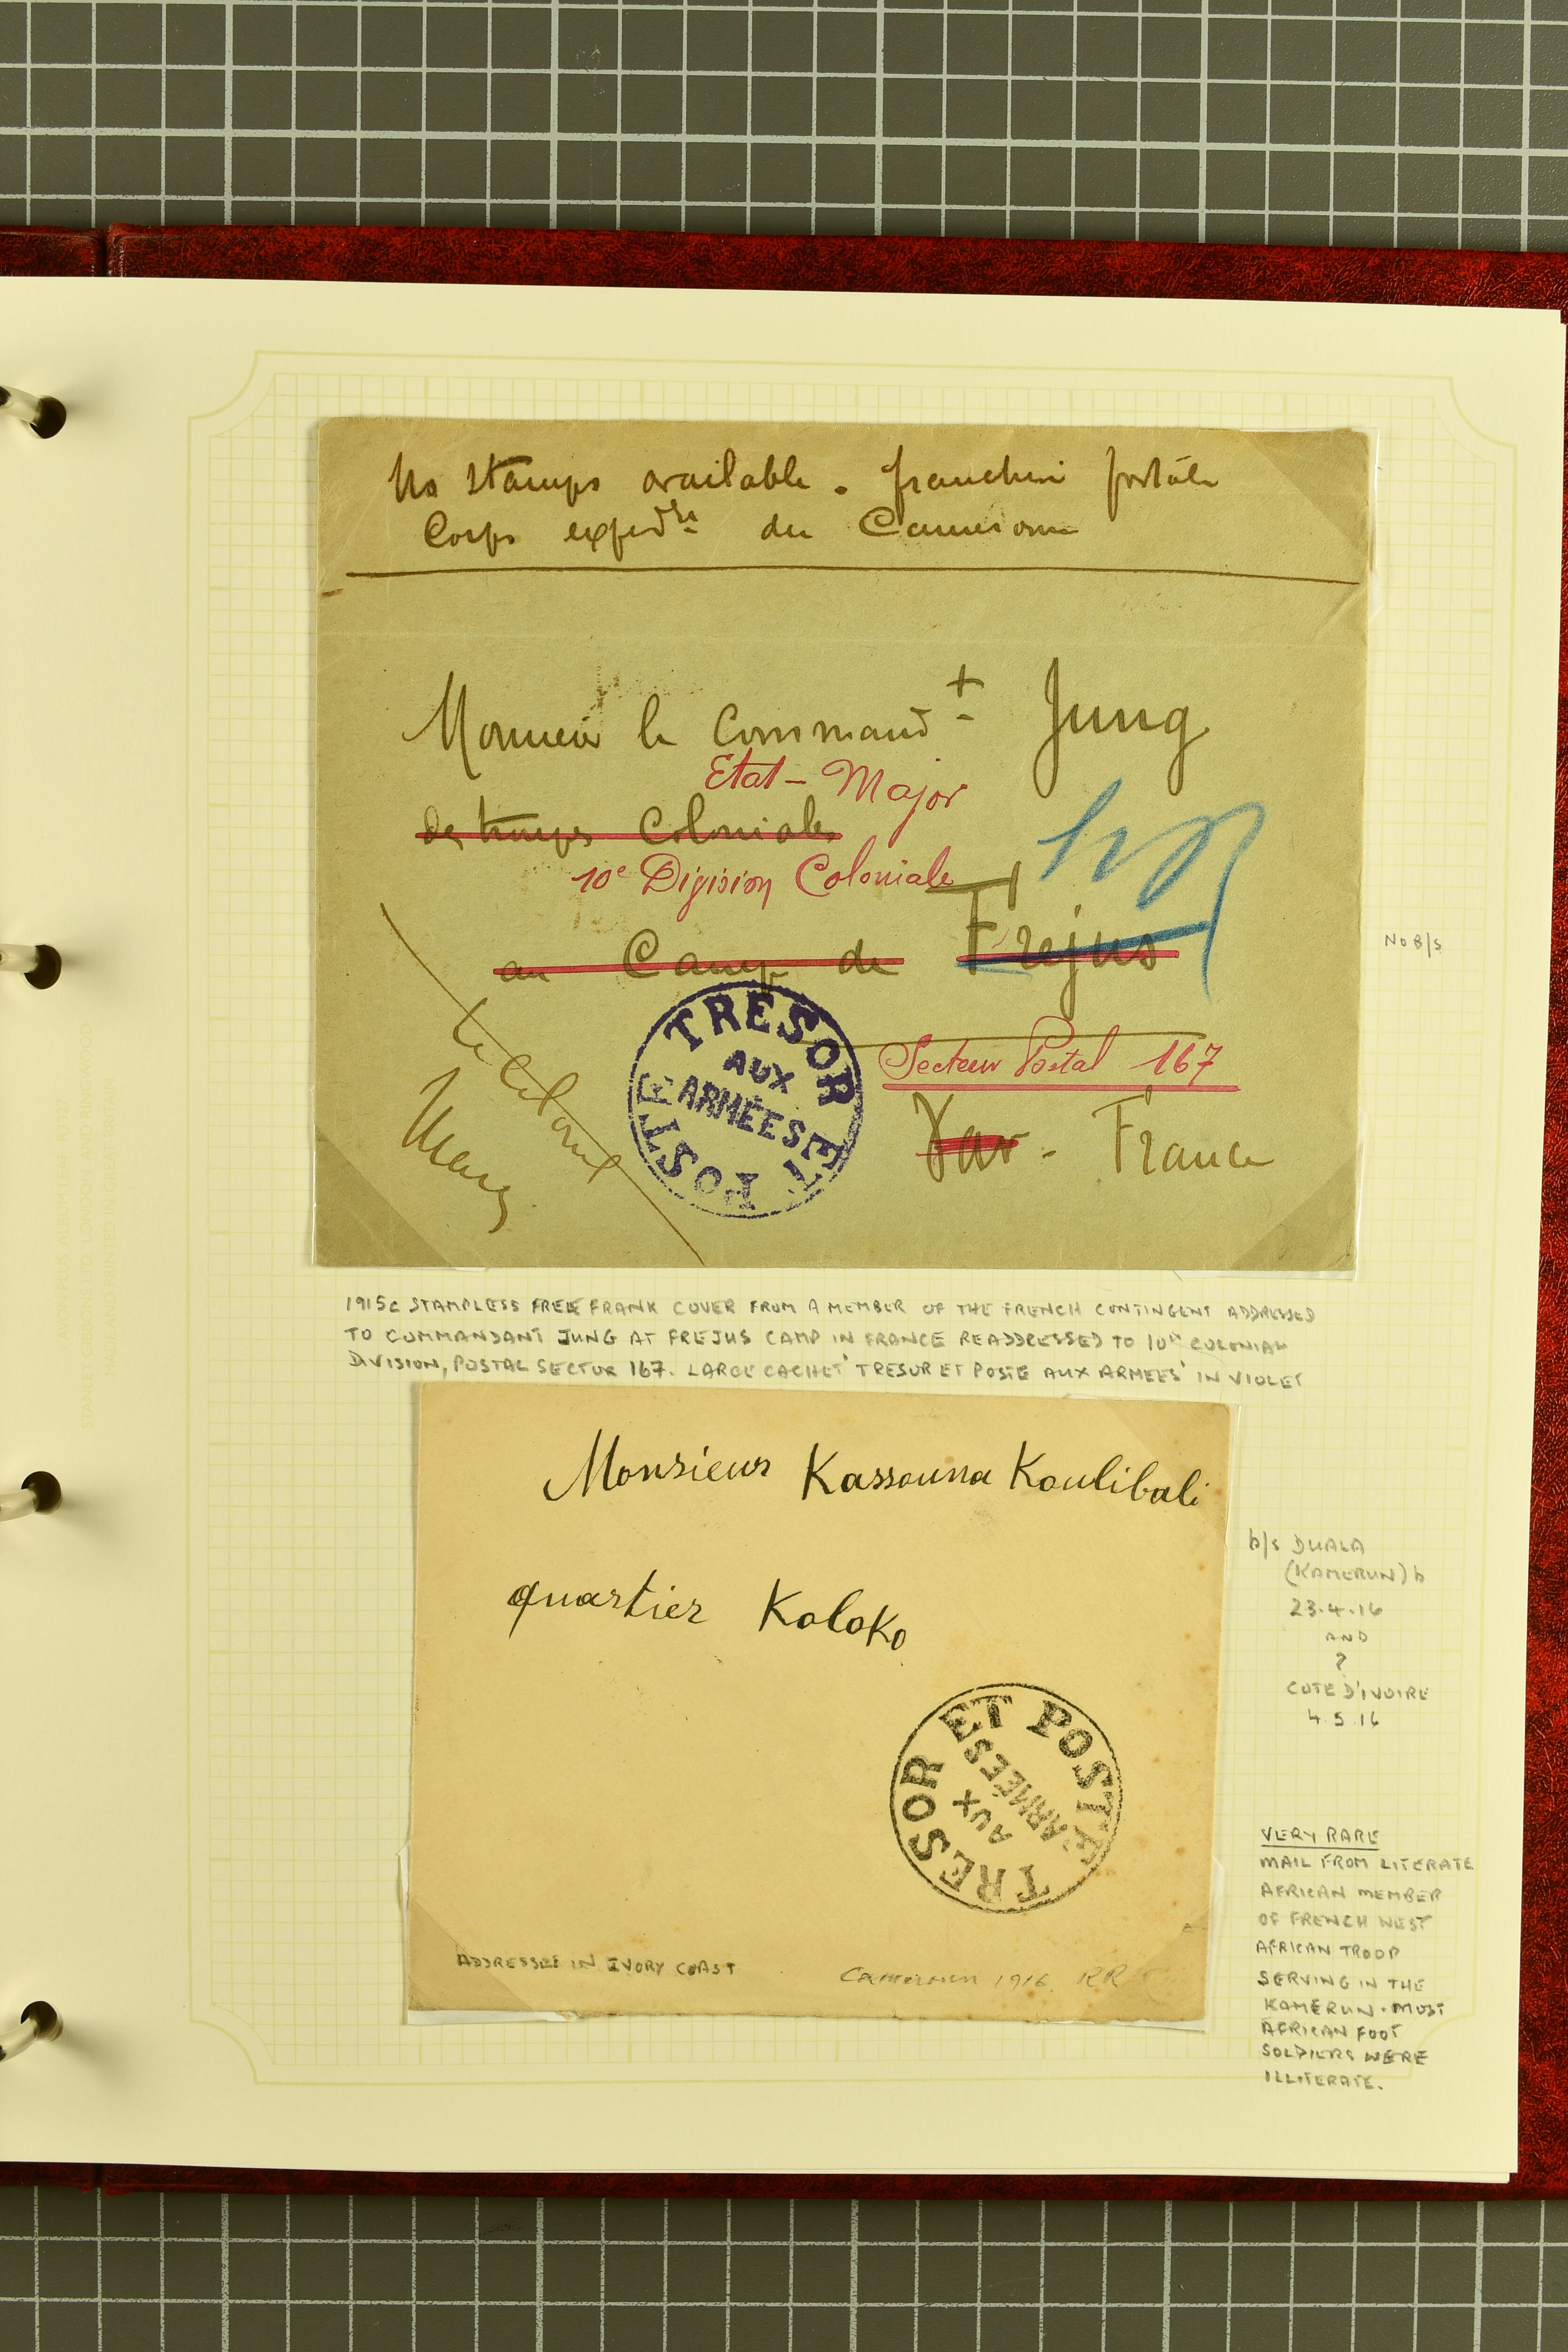 No stamps available. franchise postale
Corps expedre du Cameroun
Monsieur le Command+ Jung
Etat-Major
des troupes Coloniales
10e Division Coloniale
au Camp de Frejus
Secteur Postal 167
Var - France
Le Colonel
TRESOR ET POSTE
AUX
ARMÉES
No B/S
1915c STAMPLESS FREE FRANK COVER FROM A MEMBER OF THE FRENCH CONTINGENT ADDRESSED
TO COMMANDANT JUNG AT FREJUS CAMP IN FRANCE READDRESSED TO 10TH COLONIAL
DIVISION, POSTAL SECTOR 167. LARGE CACHET 'TRESOR ET POSTE AUX ARMEES' IN VIOLET
Monsieur Kassouna Koulibali
quartier Koloko
TRESOR ET POSTE
AUX
ARMÉES
ADDRESSEE IN IVORY COAST
Cameroun 1916. RR
b/s DUALA
(KAMERUN) b
23.4.16
AND
?
COTE D'IVOIRE
4.5.16
VERY RARE
MAIL FROM LITERATE
AFRICAN MEMBER
OF FRENCH WEST
AFRICAN TROOP
SERVING IN THE
KAMERUN. MOST
AFRICAN FOOT
SOLDIERS WERE
ILLITERATE.